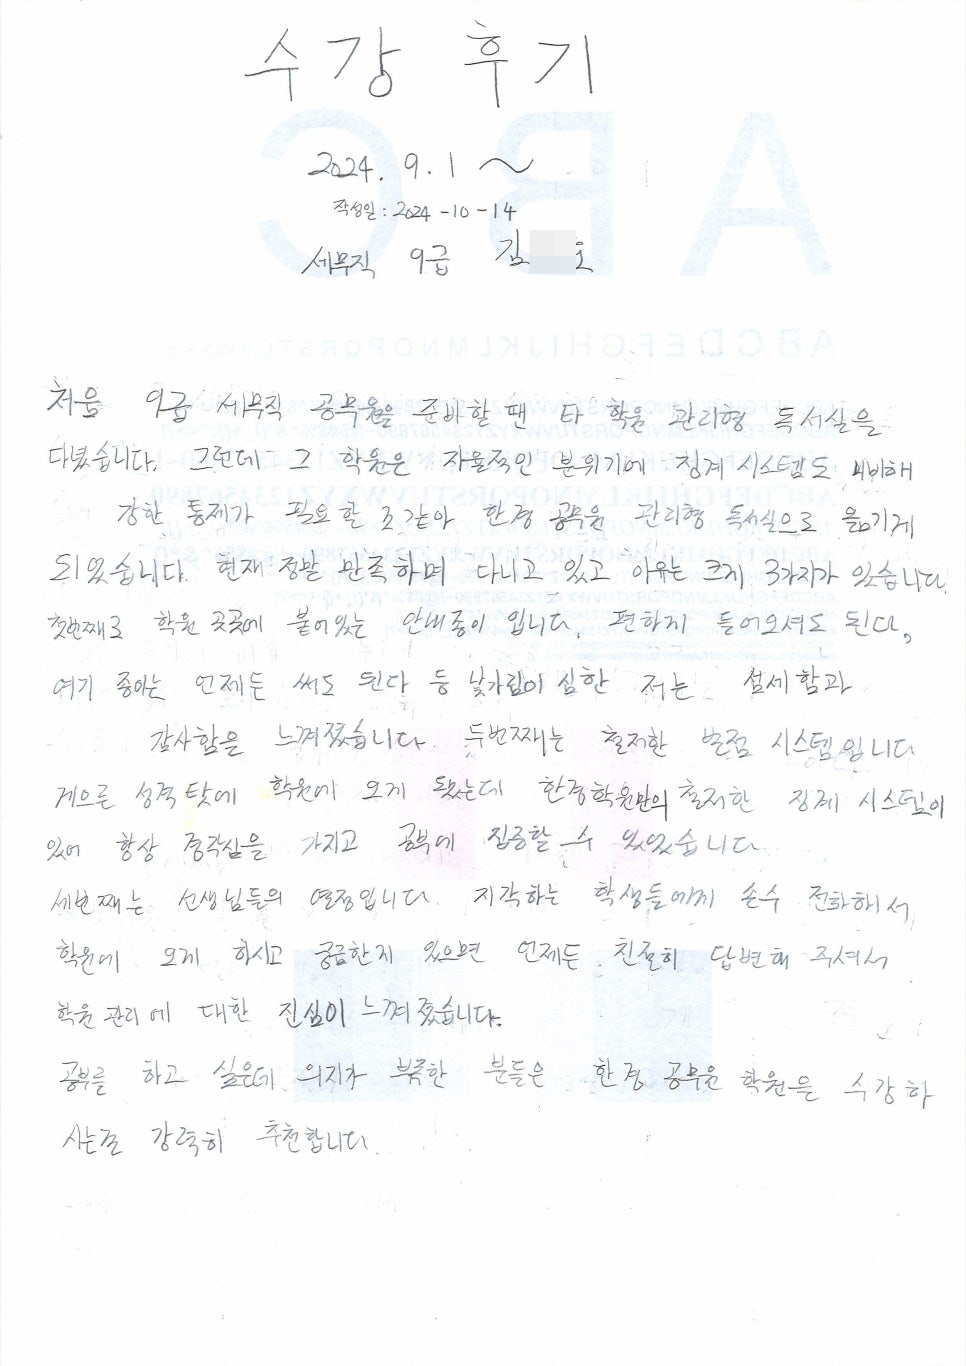 수강 후기
2024. 9. 1 ~
작성일 : 2024-10-14
세무직 9급 김 호
처음 9급 세무직 공무원을 준비할 땐 타 학원 관리형 독서실을
다녔습니다. 그런데 그 학원은 자율적인 분위기에 징계 시스템도 미비해
강한 통제가 필요할 것 같아 한경 공무원 관리형 독서실으로 옮기게
되었습니다. 현재 정말 만족하며 다니고 있고 이유는 크게 3가지가 있습니다.
첫번째로 학원 곳곳에 붙어있는 안내종이 입니다. 편하게 들어오셔도 된다,
여기 종이는 언제든 써도 된다 등 낯가림이 심한 저는 섬세함과
감사함을 느껴졌습니다. 두번째는 철저한 벌점 시스템입니다
게으른 성격 탓에 학원에 오게 됐는데 한경학원만의 철저한 징계 시스템이
있어 항상 경각심을 가지고 공부에 집중할 수 있었습니다
세번째는 선생님들의 열정입니다. 지각하는 학생들에게 손수 전화해서
학원에 오게 하시고 궁금한게 있으면 언제든 친절히 답변해 주셔서
학원 관리에 대한 진심이 느껴졌습니다.
공부를 하고 싶은데 의지가 부족한 분들은 한경 공무원 학원을 수강하
시는걸 강력히 추천합니다.
A B C
A B C D E F G H I J K L M N O P Q R S T U V W X Y Z